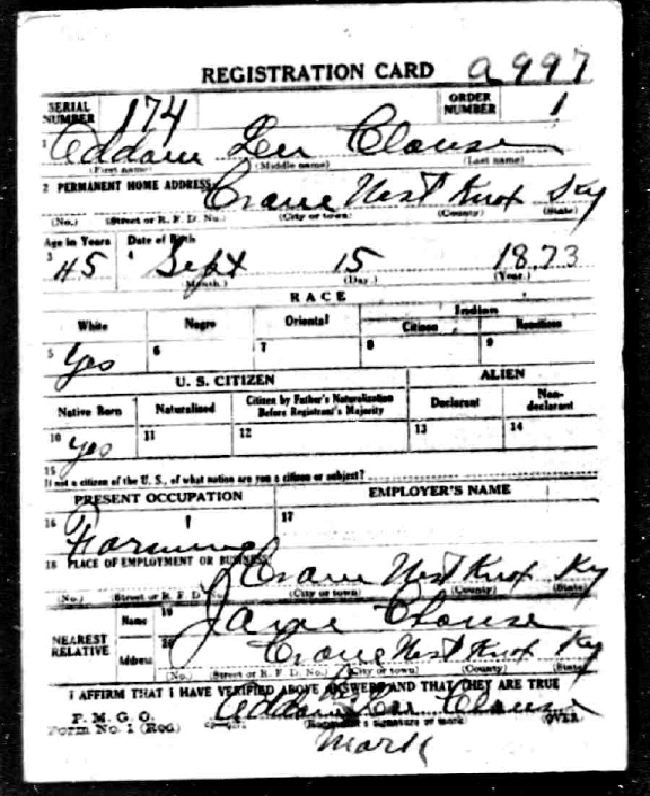 REGISTRATION CARD a 997
SERIAL NUMBER 174 ORDER NUMBER 1
1 Addam Lee Clouse
(First name) (Middle name) (Last name)
2 PERMANENT HOME ADDRESS Crane Nest Knox Ky
(No.) (Street or R. F. D. No.) (City or town) (County) (State)
Age in Years Date of Birth
3 45 4 Sept 15 1873
(Month.) (Day.) (Year.)
RACE
White Negro Oriental Indian
Citizen Noncitizen
5 Yes 6 7 8 9
U. S. CITIZEN ALIEN
Native Born Naturalized Citizen by Father's Naturalization Before Registrant's Majority Declarant Non-declarant
10 Yes 11 12 13 14
15
If not a citizen of the U. S., of what nation are you a citizen or subject?
PRESENT OCCUPATION EMPLOYER'S NAME
16 Farming 17
18 PLACE OF EMPLOYMENT OR BUSINESS Crane Nest Knox Ky
(No.) (Street or R. F. D. No.) (City or town) (County) (State)
NEAREST RELATIVE Name 19 Jane Clouse
Address 20 Crane Nest Knox Ky
(No.) (Street or R. F. D. No.) (City or town) (County) (State)
I AFFIRM THAT I HAVE VERIFIED ABOVE ANSWERS AND THAT THEY ARE TRUE
P. M. G. O.
Form No. 1 (Red) Addam Lee Clouse
(Registrant's signature or mark) (OVER)
Mark